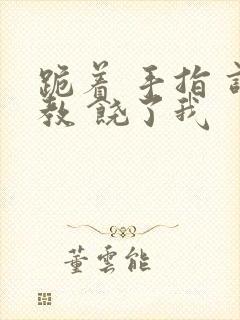 跪着 手指 
教 饶了我
董雲能